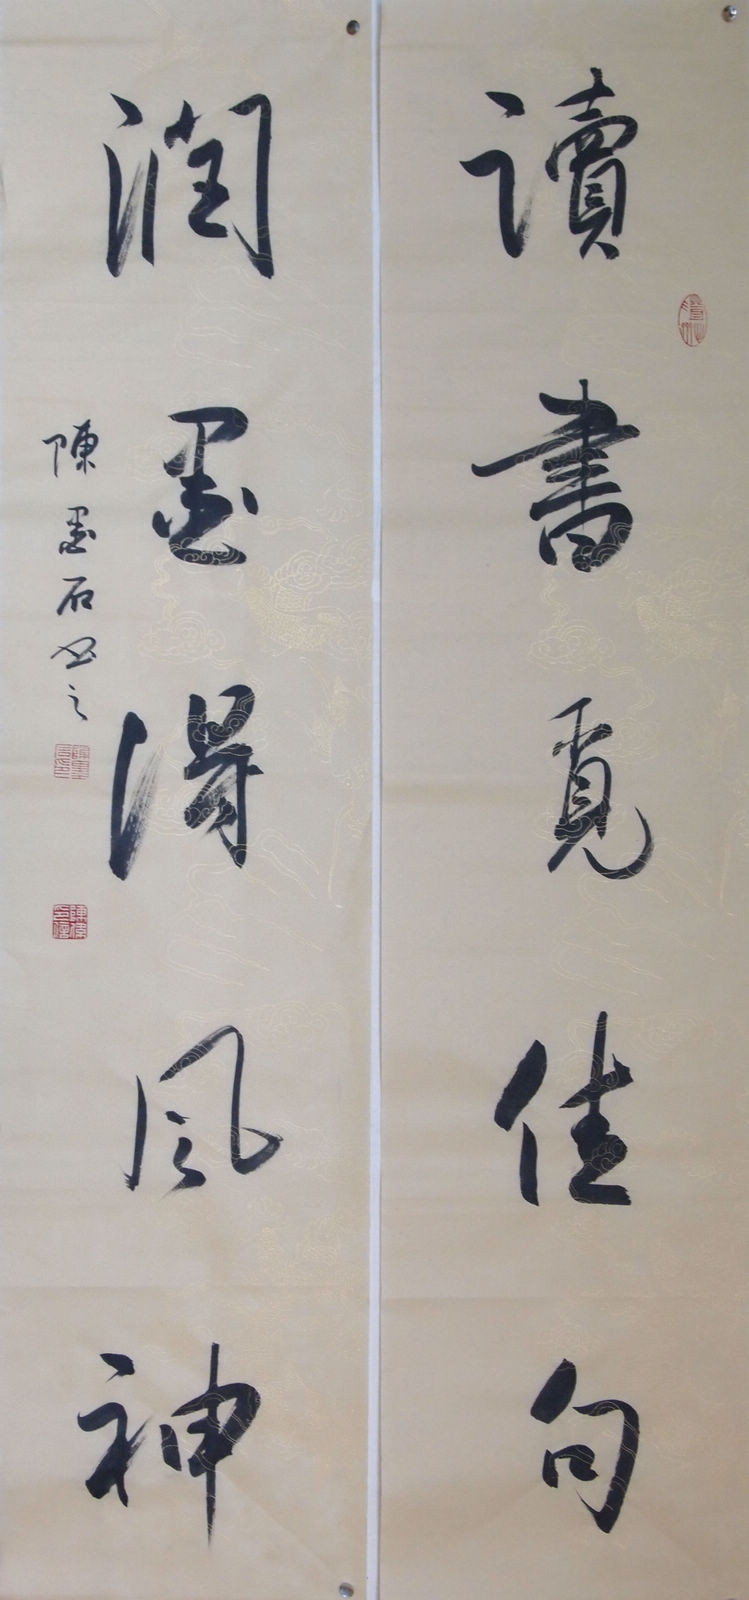 讀書覓佳句
潤墨得風神
陳墨石書之